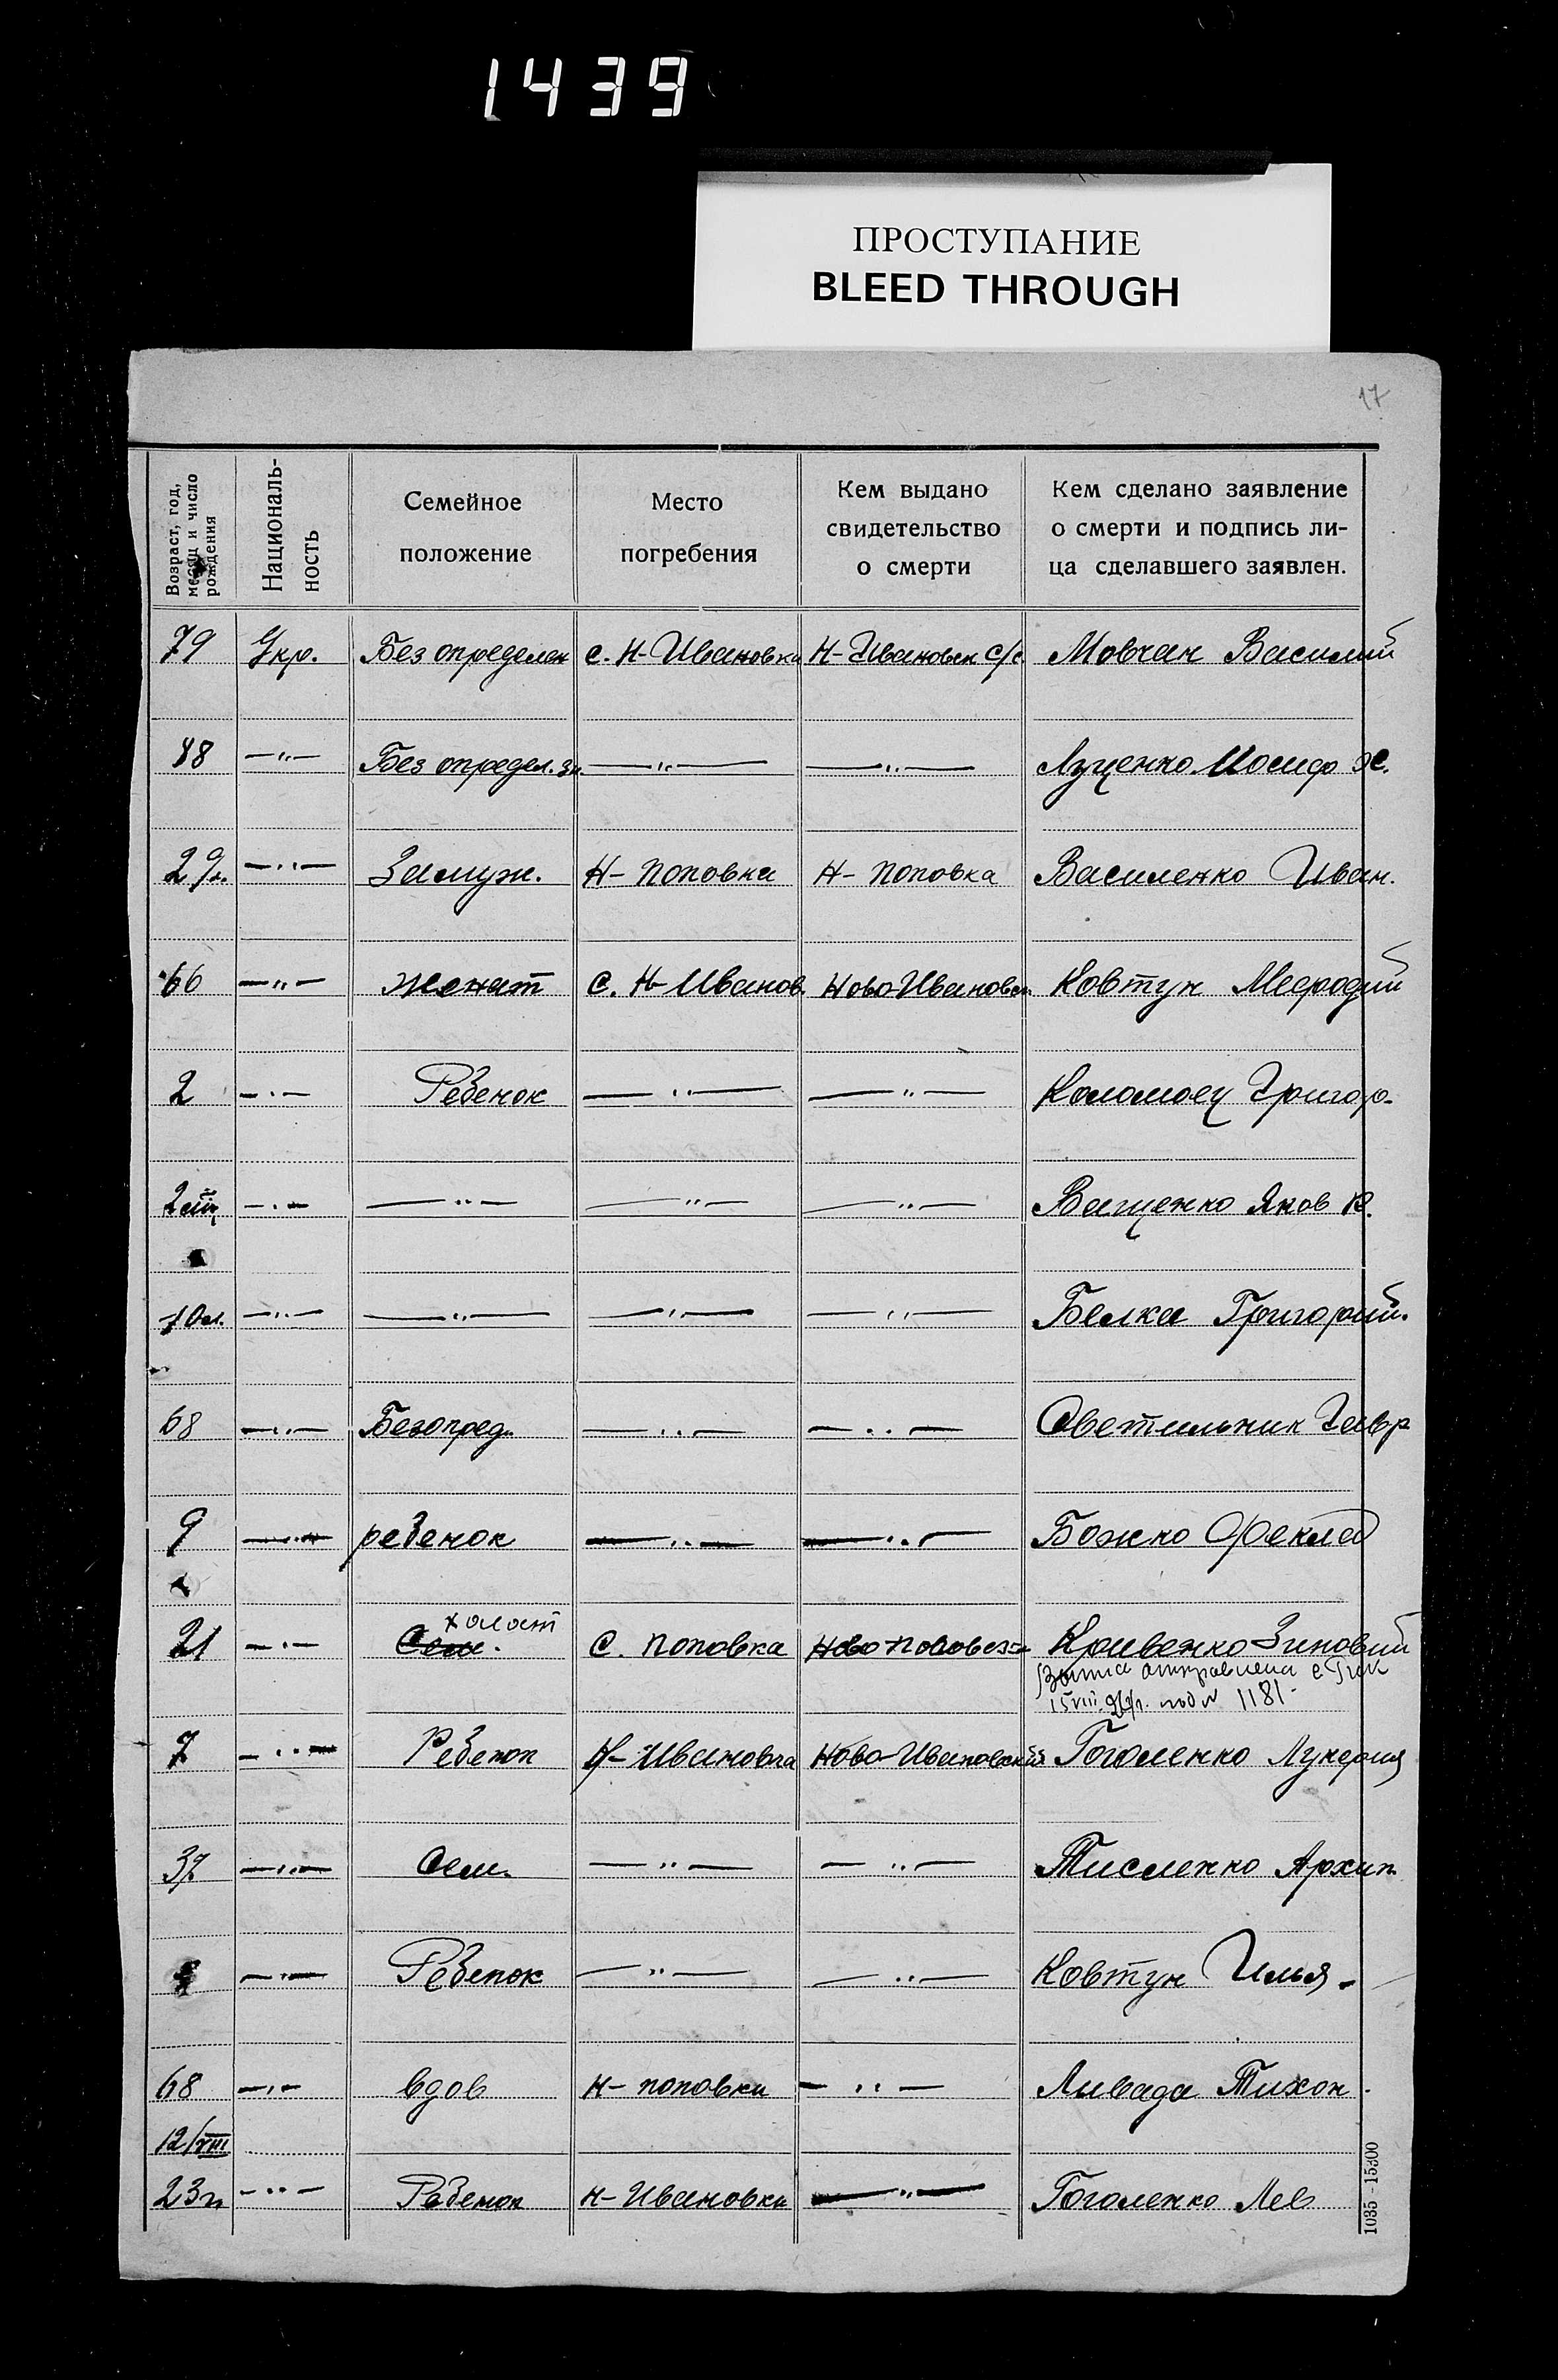 1439
ПРОСТУПАНИЕ
BLEED THROUGH
17
Возраст, год, месяц и число рождения
Националь-ность
Семейное положение
Место погребения
Кем выдано свидетельство о смерти
Кем сделано заявление о смерти и подпись ли-ца сделавшего заявлен.
79 Укр. Без определен с. Н-Ивановка Н-Ивановск с/с. Мовчан Василий
88 —"— Без определ. зн. —"— —"— Луценко Иосиф Ж.
29л. —"— Замуж. Н-Поповка Н-Поповка Василенко Иван.
66 —"— женат С. Н-Иванов. Ново-Ивановск. Ковтун Мефодий
2 —"— Ребенок —"— —"— Коломоец Григор.
2 —"— —"— —"— —"— Ващенко Яков К.
10м. —"— —"— —"— —"— Белка Григорий.
68 —"— Безопред. —"— —"— Светильник Гавр
9 —"— ребенок —"— —"— Божко Фекла
холост
21 —"— Сем. С. Поповка Кривенко Зиновий
отправлена
15 VIII под № 1181-
7 —"— Ребенок Н-Ивановка Ново-Ивановский Гоголенко Лукерия
37 —"— Сем. —"— —"— Тисленко Архип
—"— Ребенок —"— —"— Ковтун Илья.
68 —"— вдов Н-поповка —"— Ливада Тихон.
12/VIII
23г. —"— Ребенок Н-Ивановка —"— Гоголенко Лев
1035 -15300